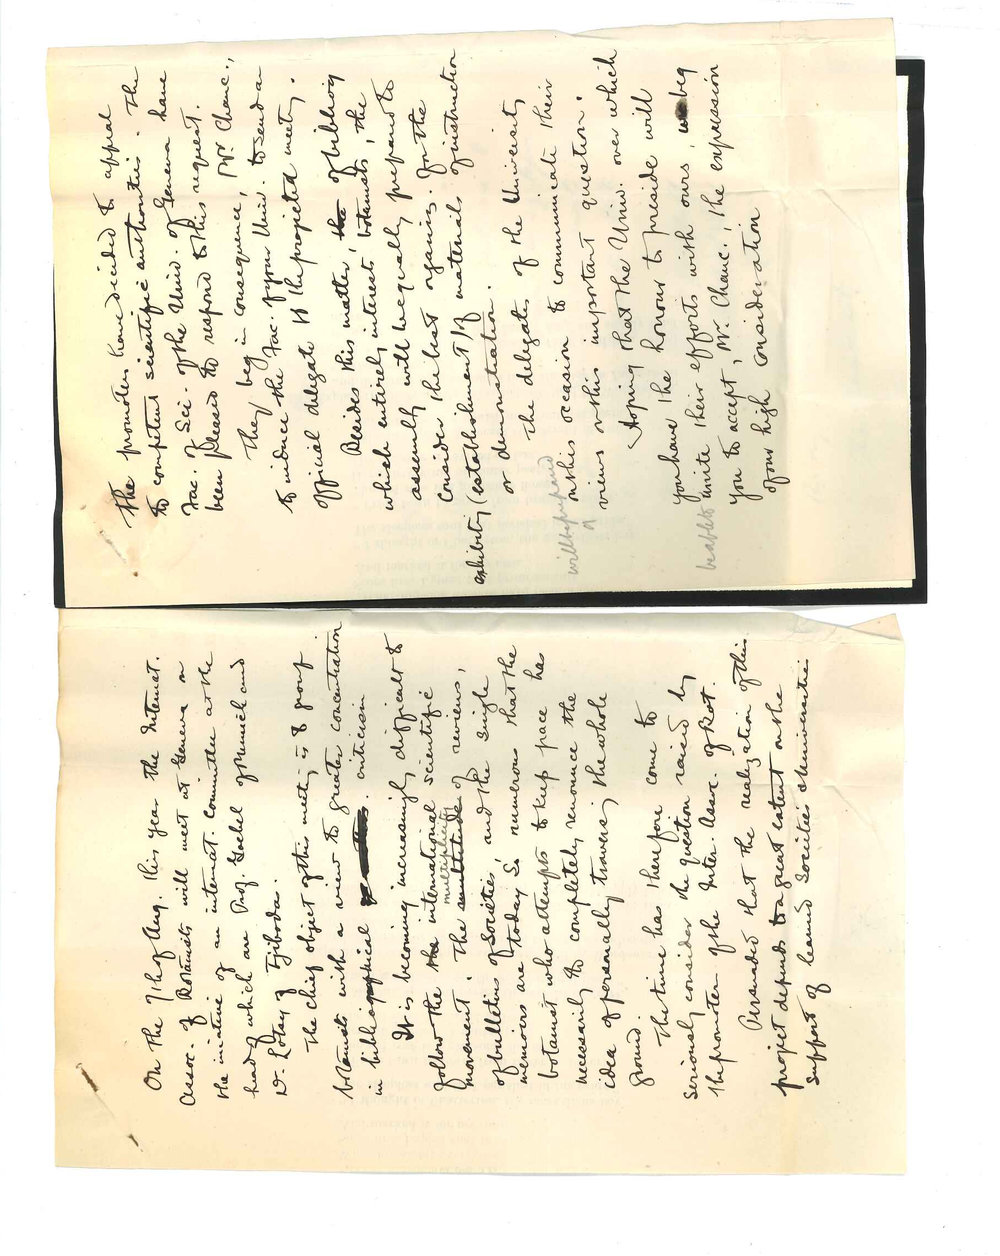 On the 7th of Aug. this year the Internat.
Assoc. of Botanists will meet at Geneva on
the iniative of an internat. Committee at the
head of which are Prof. Goebel of Munich and
D. Lotsy of Tjibodas.
The chief object of this meeting is to group
botanists with a view to greater concentration
in bibliographical criticism
It is becoming increasingly difficult to
follow the international scientific
multiplicity
movement. The multitude of reviews,
of bulletins of Societies, and the single
memoirs are today so numerous that the
botanist who attempts to keep pace has
necessarily to completely renounce the
idea of personally traversing the whole
ground.
The time has therefore come to
seriously consider the question raised by
the promoters of the Inter. Assoc. of Bot.
Persuaded that the realization of this
project depends to a great extent on the
support of learned Societies & Universities
the promoters have decided to appeal
to competent scientific authorities. The
Fac. of Sci. of the Univ. of Geneva have
been pleased to respond to this request.
They beg in consequence, Mr. Chanc.,
to induce the Fac. of your Univ. to send an
official delegate to the projected meeting.
Besides this matter, the of bibliog
which entirely interests botanists, the
assembly will be equally prepared to
consider the best organis. for the
exhibiting (establishment) of materials of instruction
or demonstration.
The delegate of the University
will be prepared
on this occasion to communicate their
views on this important question.
Hoping that the Univ. over which
you have the honour to preside will
be able to unite their efforts with ours, we beg
you to accept, Mr. Chanc., the expression
of our high consideration